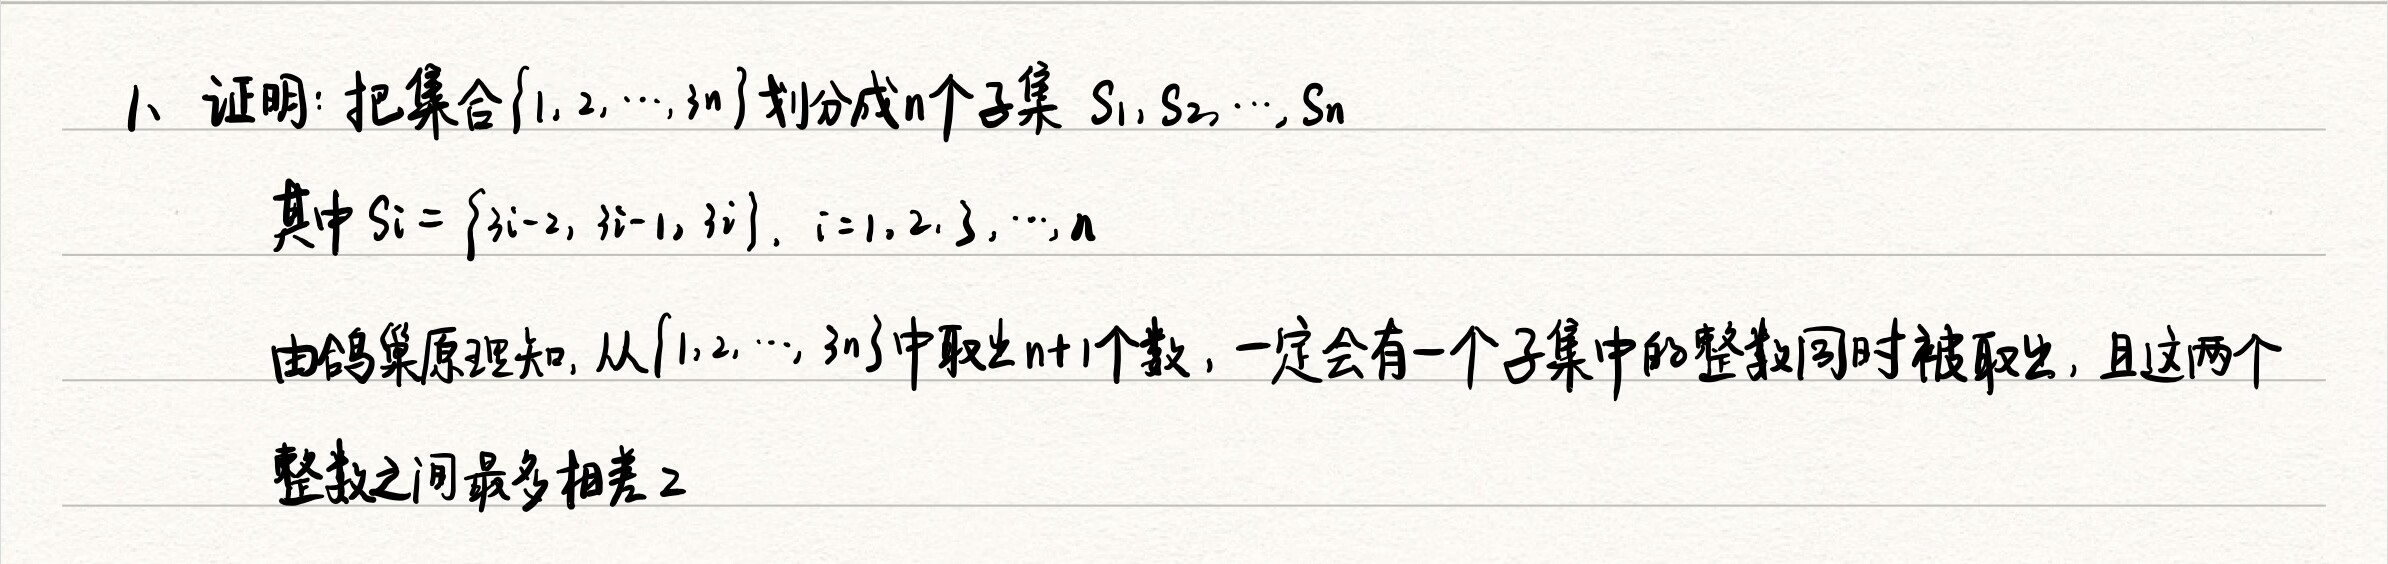 1、证明：把集合{1, 2, ⋯, 3n}划分成n个子集 S1, S2, ⋯, Sn
其中 Si = {3i-2, 3i-1, 3i}, i=1, 2, 3, ⋯, n
由鸽巢原理知, 从{1, 2, ⋯, 3n}中取出n+1个数, 一定会有一个子集中的整数同时被取出, 且这两个
整数之间最多相差2